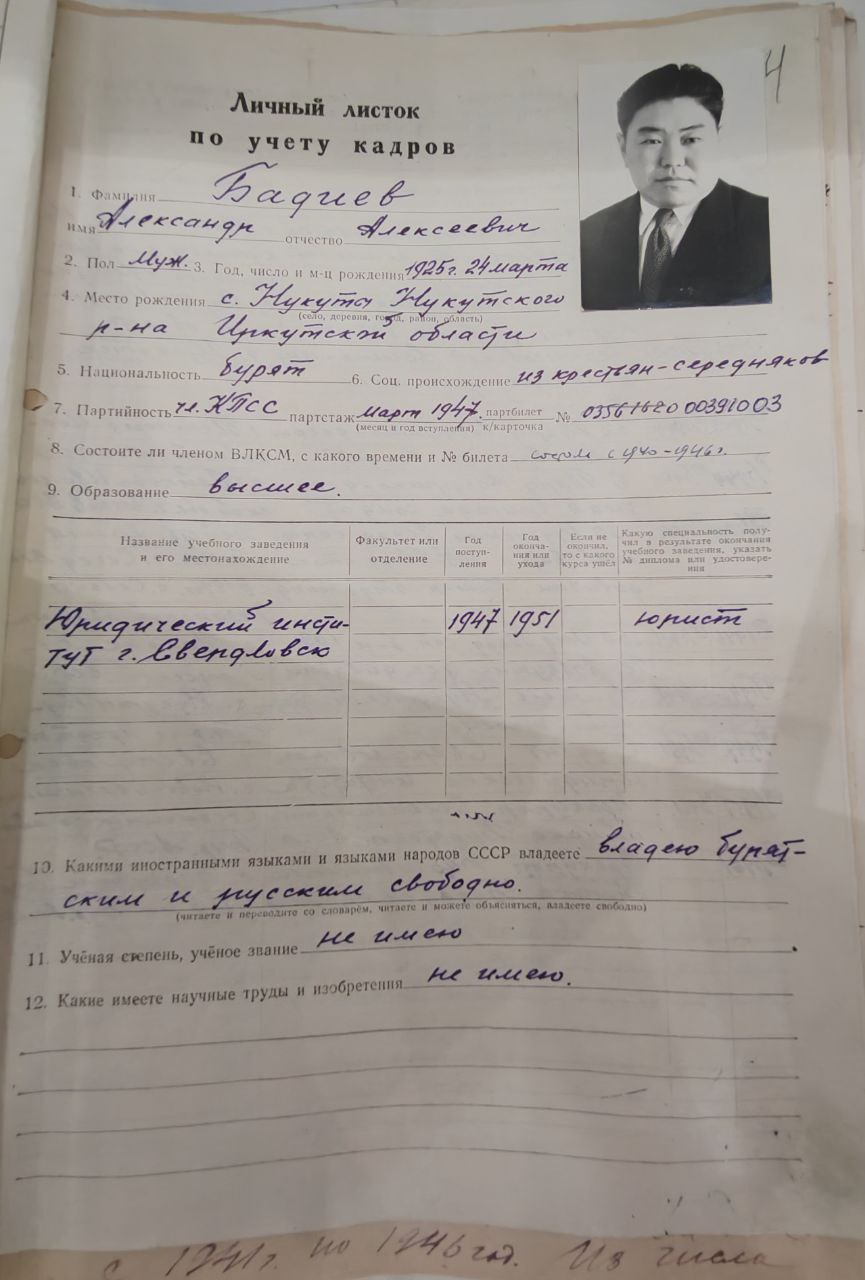 4
Личный листок
по учету кадров
1. Фамилия Бадиев
имя Александр отчество Алексеевич
2. Пол Муж. 3. Год, число и м-ц рождения 1925г. 24 марта
4. Место рождения с. Нукуты Нукутского
(село, деревня, город, район, область)
р-на Иркутской области
5. Национальность бурят 6. Соц. происхождение из крестьян-середняков
7. Партийность чл. КПСС партстаж март 1947. партбилет № 03561620 00391003
(месяц и год вступления) к/карточка
8. Состоите ли членом ВЛКСМ, с какого времени и № билета с 1940-1946г.
9. Образование высшее.
Название учебного заведения и его местонахождение Факультет или отделение Год поступления Год окончания или ухода Если не окончил, то с какого курса ушёл Какую специальность получил в результате окончания учебного заведения, указать № диплома или удостоверения
Юридический инсти- 1947 1951 юрист
тут г. Свердловск
10. Какими иностранными языками и языками народов СССР владеете владею бурят-
ским и русским свободно.
(читаете и переводите со словарём, читаете и можете объясняться, владеете свободно)
11. Учёная степень, учёное звание не имею
12. Какие имеете научные труды и изобретения не имею.
с 1941г. по 1946 год. Из числа